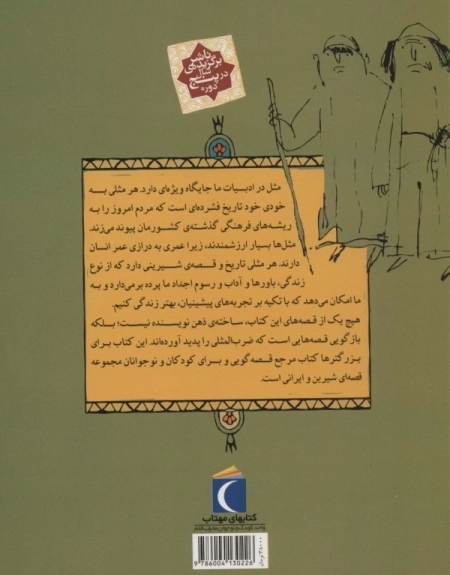 ناشر
برگزیده‌ی
سال
در پنج
دوره
مثل در ادبیات ما جایگاه ویژه‌ای دارد. هر مثلی به
خودی خود تاریخ فشرده‌ای است که مردم امروز را به
ریشه‌های فرهنگی گذشته‌ی کشورمان پیوند می‌زند.
مثل‌ها بسیار ارزشمندند، زیرا عمری به درازی عمر انسان
دارند. هر مثلی تاریخ و قصه‌ی شیرینی دارد که از نوع
زندگی، باورها و آداب و رسوم اجداد ما پرده برمی‌دارد و به
ما امکان می‌دهد که با تکیه بر تجربه‌های پیشینیان، بهتر زندگی کنیم.
هیچ یک از قصه‌های این کتاب، ساخته‌ی ذهن نویسنده نیست؛ بلکه
بازگویی قصه‌هایی است که ضرب‌المثلی را پدید آورده‌اند. این کتاب برای
بزرگترها کتاب مرجع قصه‌گویی و برای کودکان و نوجوانان مجموعه
قصه‌ای شیرین و ایرانی است.
کتابهای مهتاب
واحد کودک و نوجوان محراب قلم
9 786004 130226
تومان